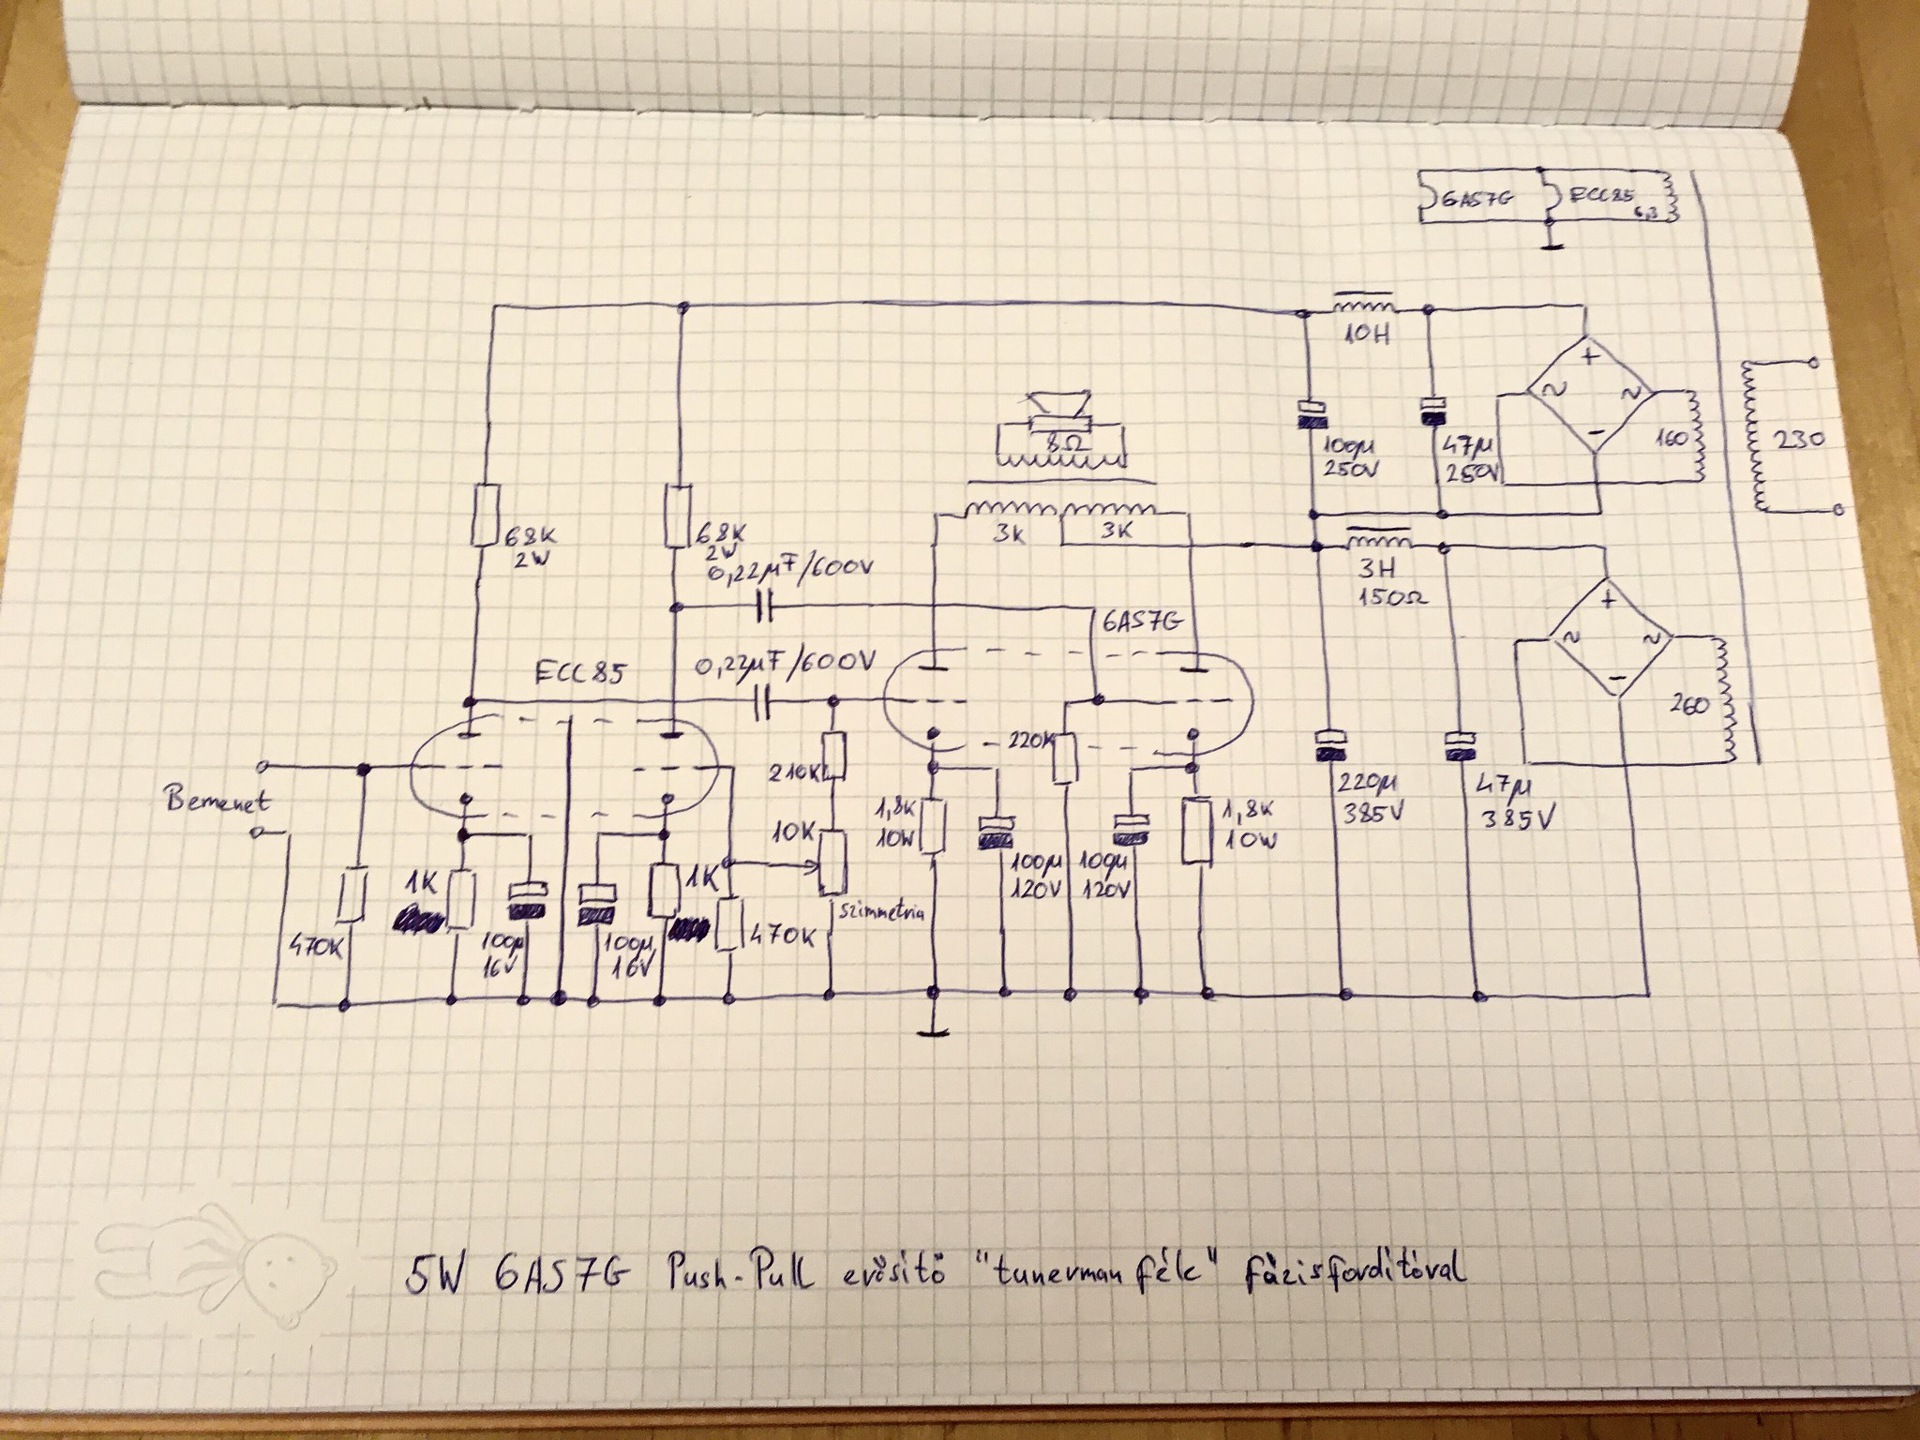 6AS7G
ECC85
6,3
10H
8Ω
100µ
250V
47µ
250V
+
~
~
-
160
230
68K
2W
68K
2W
3k
3K
3H
150Ω
0,22µF/600V
6AS7G
+
~
~
-
260
ECC85
0,22µF/600V
Bemenet
210K
220K
10K
1,8K
10W
1,8K
10W
220µ
385V
47µ
385V
1K
1K
100µ
120V
100µ
120V
szimmetria
470K
100µ
16V
100µ
16V
470K
5W 6AS7G Push-Pull erősítő "tunerman féle" fázisfordítóval